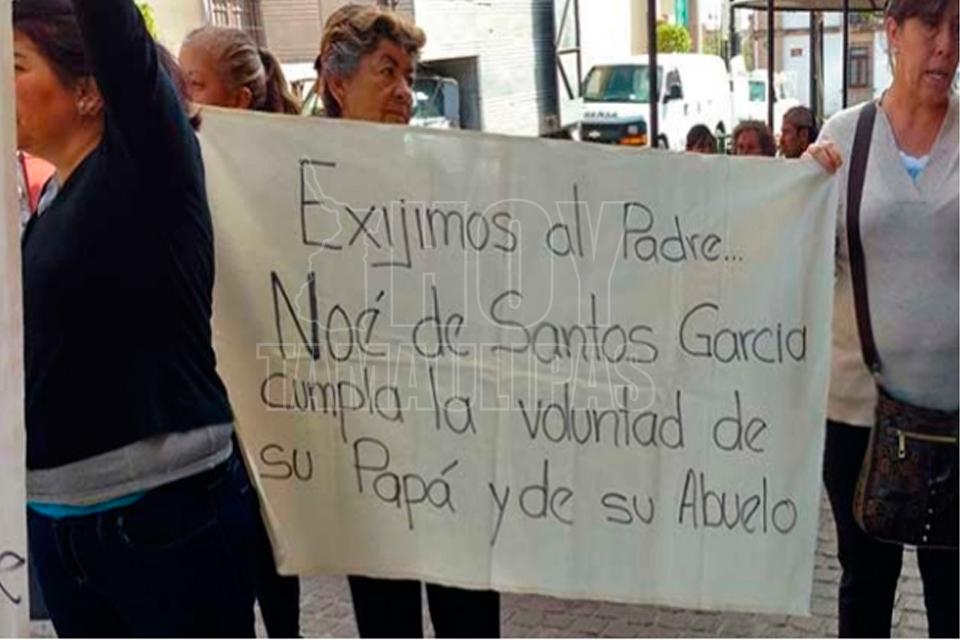 Exijimos al Padre...
Noé de Santos Garcia
cumpla la voluntad de
su Papá y de su Abuelo
HOY
TAMAULIPAS